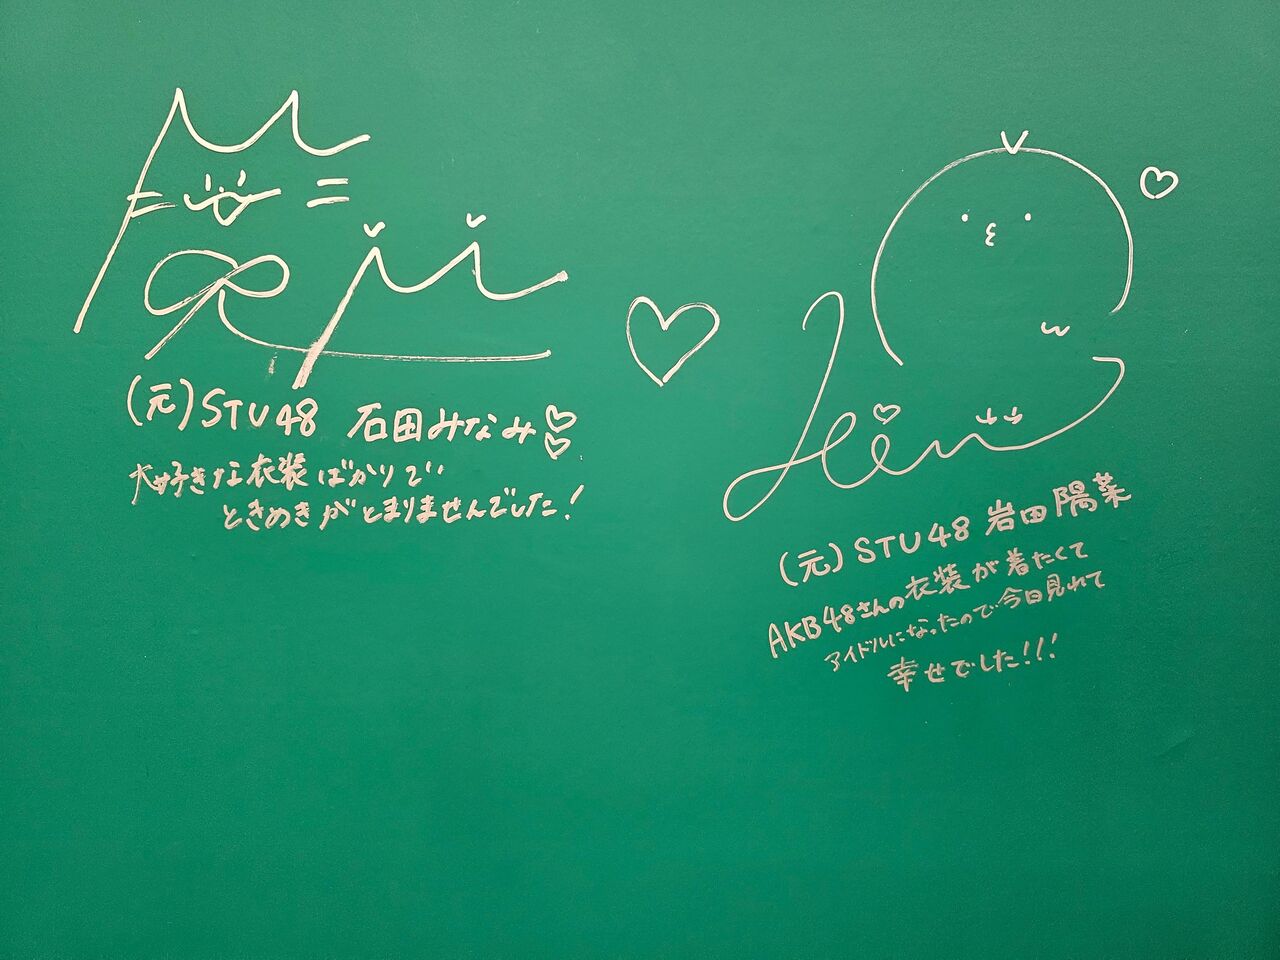 (元)STU48 石田みなみ♡♡
大好きな衣装ばかりで
ときめきがとまりませんでした!
(元)STU48 岩田陽菜
AKB48さんの衣装が着たくて
アイドルになったので今日見れて
幸せでした!!!